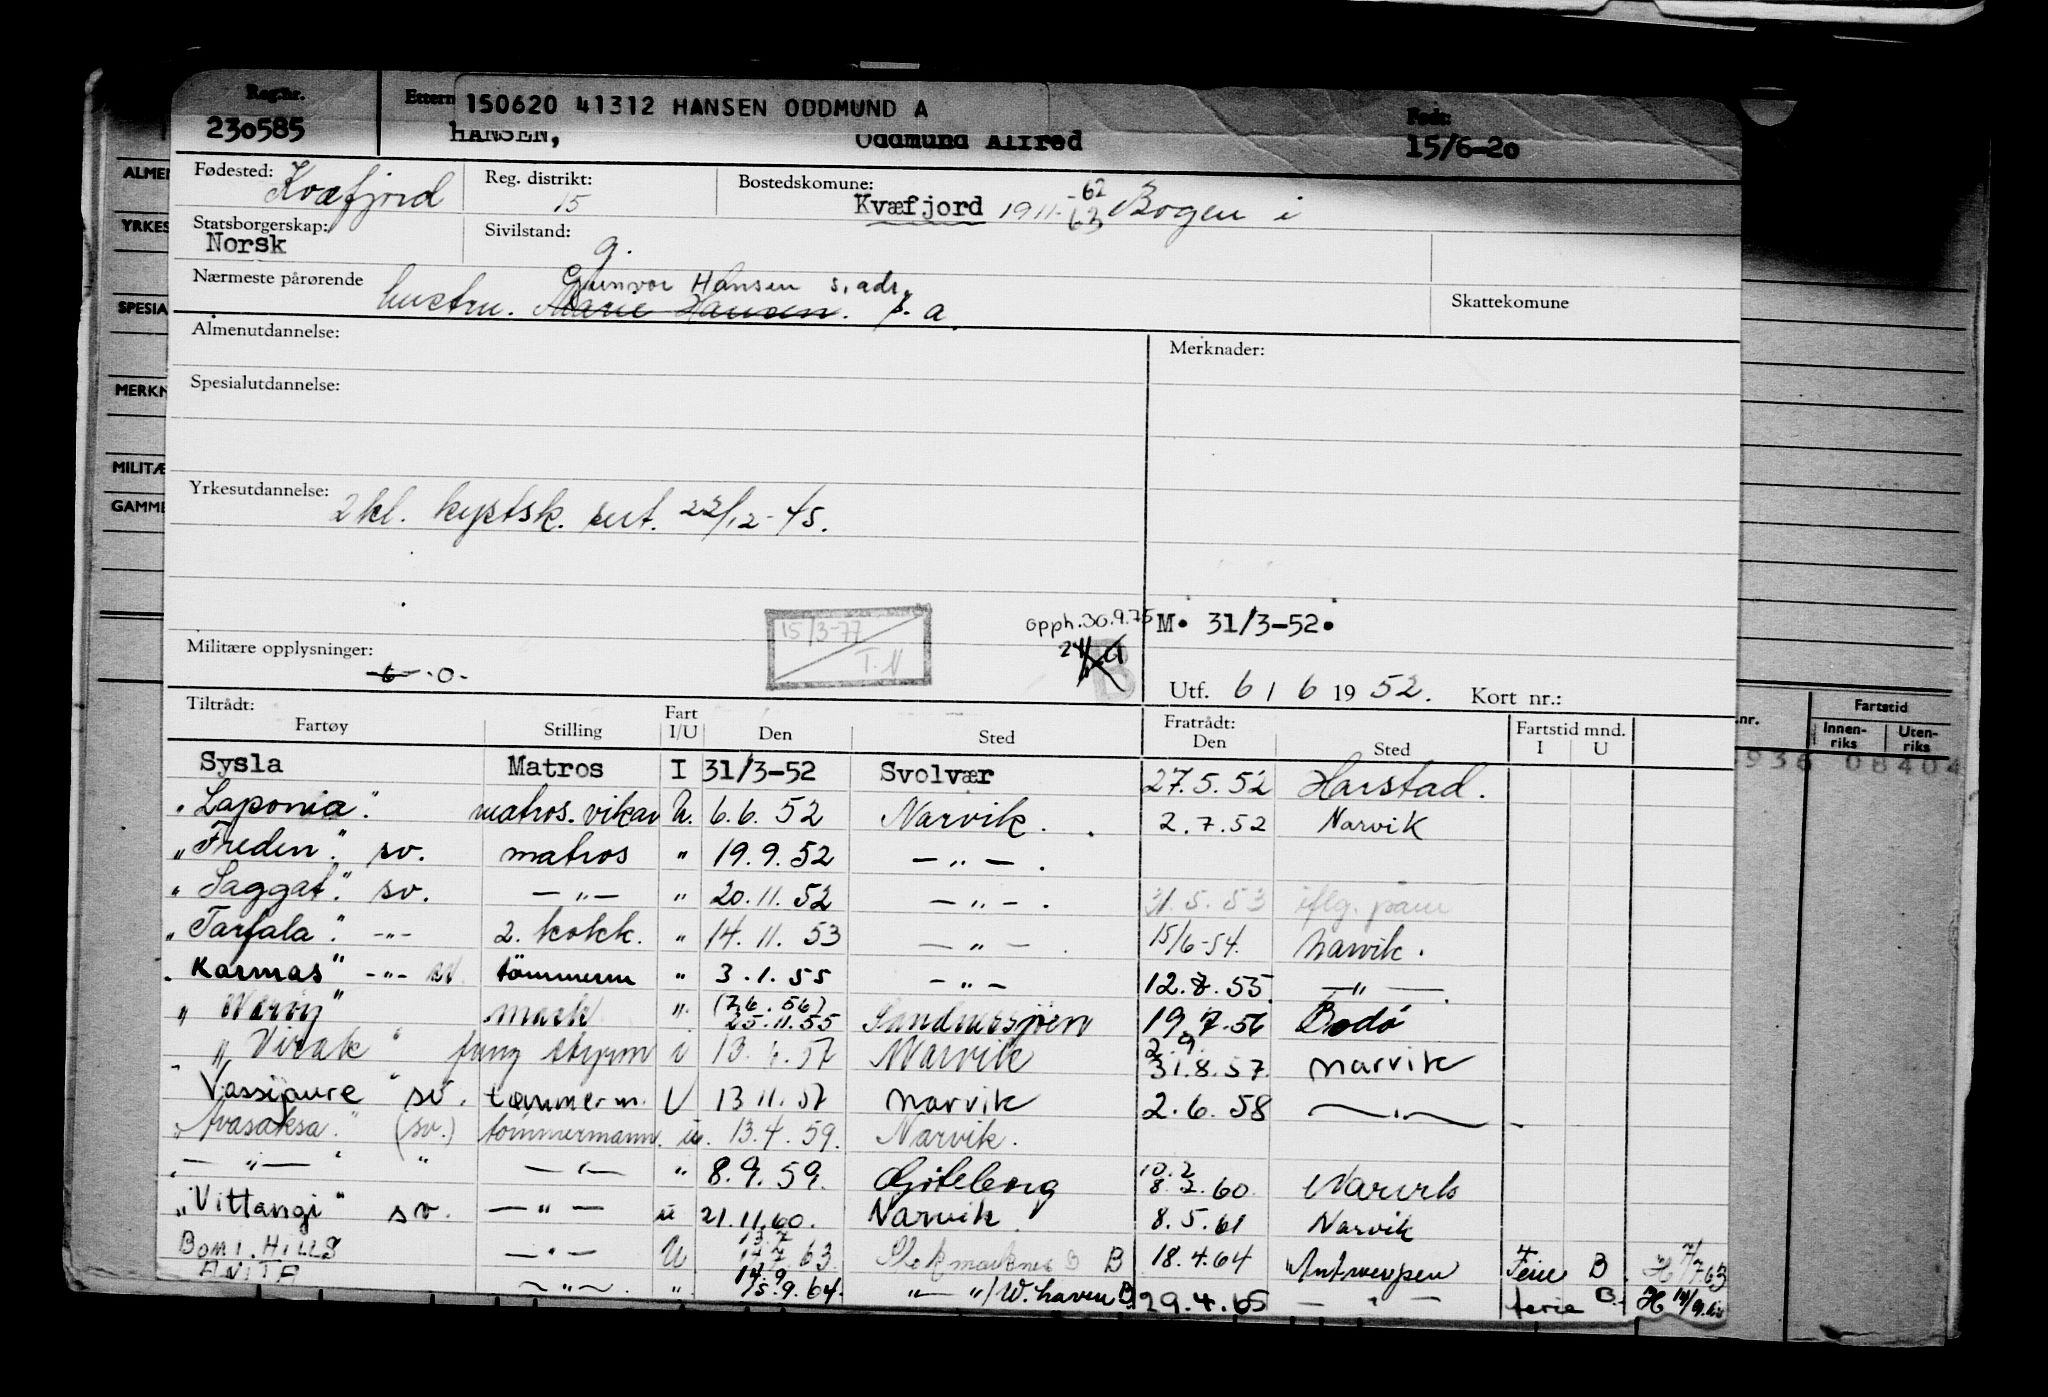 Reg.nr. Ettern 150620 41312 HANSEN ODDMUND A Født:
230585 HANSEN, Oddmund Alfred 15/6-20
ALMEN
YRKES
SPESIA
MERKN
MILITÆ
GAMME
Fødested: Kvæfjord Reg. distrikt: 15 Bostedskomune: Kvæfjord 1911 -62 63 Bogen i
Statsborgerskap: Norsk Sivilstand: g.
Nærmeste pårørende Gunvor Hansen s. adr.
hustru. Marie Hansen. s. a. Skattekomune
Almenutdannelse: Merknader:
Spesialutdannelse:
Yrkesutdannelse: 2 kl. kystsk. sert. 22/12-45.
15/3-77 T.N Opph. 30.9.75 M. 31/3-52.
Militære opplysninger: 6 .0. B
Utf. 6 / 6 19 52. Kort nr.:
Tiltrådt: Fratrådt: Fartstid mnd.
Fartøy Stilling Fart I/U Den Sted Den Sted I U
nr. Fartstid Innen-riks Uten-riks
936 08404
Sysla Matros I 31/3-52 Svolvær 27.5.52 Harstad.
"Laponia". matros. vikar U. 6.6.52 Narvik. 2.7.52 Narvik
"Freden". sv. matros " 19.9.52 — " —.
"Saggat". sv. — " — " 20.11.52 — " —. 31.5.53 iflg. pam
"Tarfala". -"- 2. kokk. " 14.11.53 — " — 15/6-54. Narvik.
"Karmas" -"- sv. tömmerm " 3.1.55 — " — 12.8.55. — " —.
"Narvy" mask " (7.6.56) 25.11.55 Sandnessjøen 19.7.56 Bodö
"Virak" fung styrm i 13.6.57 Narvik 2.9. 31.8.57. Narvik
Vassijaure" sv. tømmerm. U 13.11.57 Narvik 2.6.58 — " —
"Avasaksa". (sv.) tømmermann. u. 13.4.59. Narvik.
— " — " — " — " 8.9.59. Gøteborg 10.2 8.2.60. Narvik
"Vittangi" sv. — " — u 21.11.60. Narvik. 8.5.61 Narvik
BOMI. HILLS — " — U 13.7 63 Stokmarknes B 18.4.64 Antwerpen Ferie B. H 7/7 63
ANITA — " —. ". 14.9 15.9.64. — " — / W. haven B 29.4.65 — " — ferie B. H 14/9.64